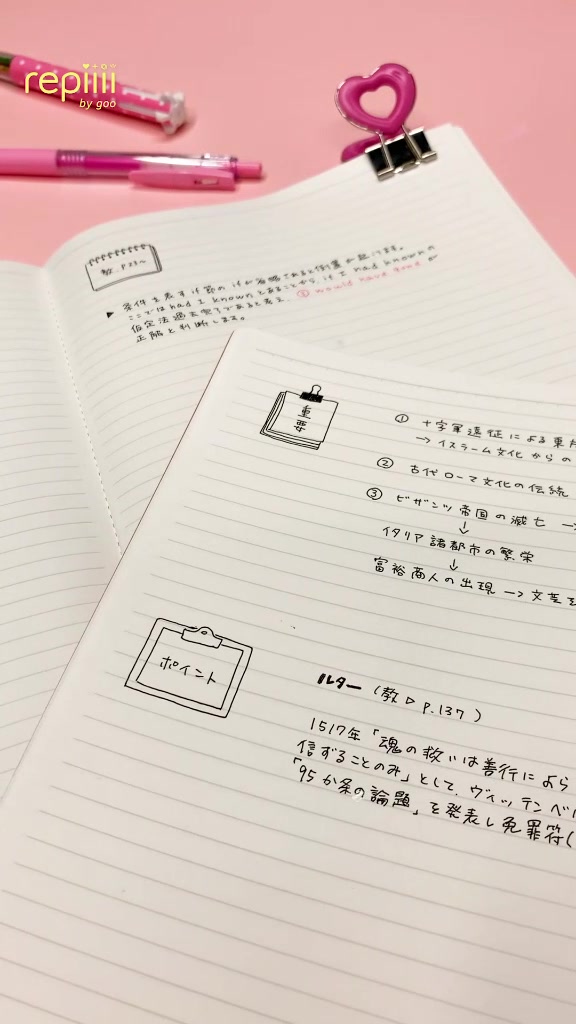 repiiii
by goo
条件を表すif節のifが省略であると倒置が起こります。
ここではhad I knownとあることから、if I had knownの
仮定法過去完了であると考え、① would have gone が
正解と判断します。
重要
① 十字軍遠征による東方
→ イスラーム文化からの
② 古代ローマ文化の伝統
③ ビザンツ帝国の滅亡 →
↓
イタリア諸都市の繁栄
↓
富裕商人の出現 → 文芸を
ポイント
ルター (教▷P.137)
1517年「魂の救いは善行によら
信ずることのみ」として、ヴィッテンベル
「95か条の論題」を発表し免罪符(